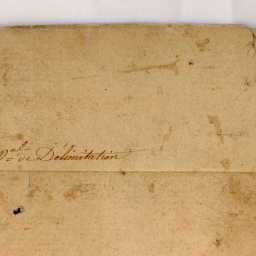 P.al de Délimitation